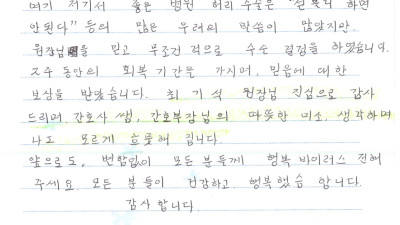 여기 저기서 좋은 병원 허리 수술은 "함부로 하면
안된다" 등의 많은 우려의 말씀이 많았지만.
원장님을 믿고 무조건적으로 수술 결정을 하였습니다.
2주 동안의 회복 기간을 가지며, 믿음에 대한
보상을 받았습니다. 최기석 원장님 진심으로 감사
드리며, 간호사 쌤, 간호부장님의 따뜻한 미소, 생각하며
나도 모르게 흐뭇해 집니다.
앞으로도, 변함없이 모든 분들께 행복 바이러스 전해
주세요. 모든 분들이 건강하고, 행복했슴 합니다.
감사합니다.